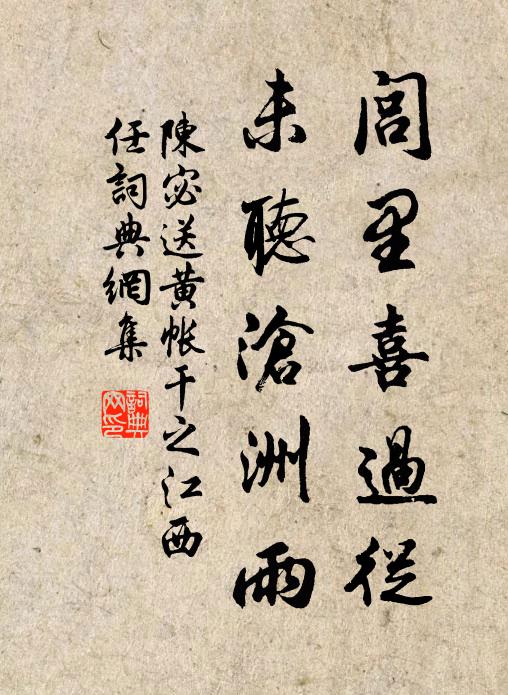 閭里喜過從
未聽滄洲雨
陳宓送黄帐干之江西
任詞典網集
詞典网印